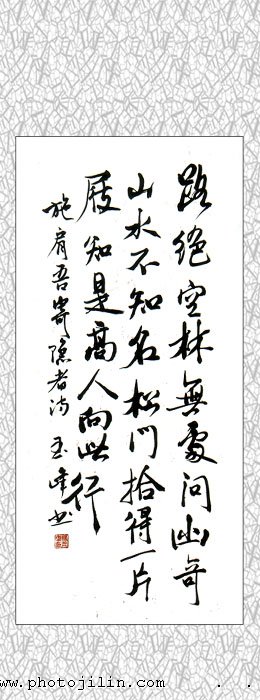 路絕空林無處問幽奇
山水不知名松門拾得一片
屐知是高人向此行
施肩吾寄隱者诗 玉峰书
www.photojilin.com